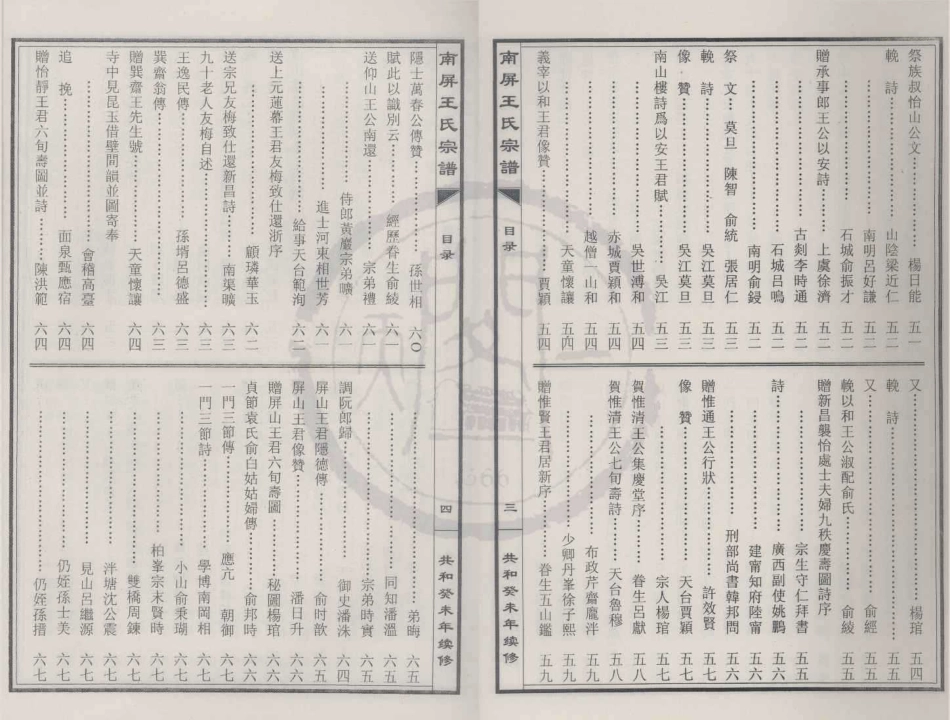 祭族叔怡山公文……楊日能 五一
輓 詩……山陰梁近仁 五二
……南明呂好謙 五二
……石城俞振才 五二
贈承事郎王公以安詩……上虞徐濟 五二
……古剡李時通 五二
……石城呂鳴 五二
……南明俞鋟 五二
祭 文……莫旦 陳智 俞統 張居仁 五三
輓 詩……吳江莫旦 五三
像 贊……吳江莫旦 五三
南山樓詩爲以安王君賦……吳江
……吳世溥和 五四
……赤城賈穎和 五四
……越僧一山和 五四
……天童懷讓 五四
義宰以和王君像贊……賈穎 五四
又……楊琯 五四
輓 詩…… 五五
又……俞經 五五
輓以和王公淑配俞氏……俞綾 五五
贈新昌襲怡處士夫婦九秩慶壽圖詩序
……宗生守仁拜書 五五
詩……廣西副使姚鵬 五六
……建甯知府陸甯 五六
……刑部尚書韓邦問 五六
贈惟通王公行狀……許效賢 五七
像 贊……天台賈穎 五七
……宗人楊琯 五七
賀惟清王公集慶堂序……眷生呂獻 五八
賀惟清王公七旬壽詩……天台魯穆 五九
……布政芹齋龐泮 五九
……少卿丹峯徐子熙 五九
贈惟賢王君居新序……眷生五山鑑 五九
南屏王氏宗譜
目录
三
共和癸未年续修
南屏王氏宗譜
目录
四
共和癸未年续修
隱士萬春公傳贊……孫世相 六〇
賦此以識別云……經歷眷生俞綾 六一
送仰山王公南還……宗弟禮 六一
……侍郎黃巖宗弟曠 六一
……進士河東相世芳 六一
……給事天台範洵 六二
送上元蓮幕王君友梅致仕還浙序
……顧璘華玉 六二
送宗兄友梅致仕還新昌詩……南渠曠 六三
九十老人友梅自述…… 六三
王逸民傳……孫壻呂德盛 六三
巽齋翁傳…… 六三
贈巽齋王先生號……天童懷讓 六四
……會稽高臺 六四
寺中見昆玉借壁間韻並圖寄奉
追 挽……面泉甄應宿 六四
贈怡靜王君六旬壽圖並詩……陳洪範 六四
……弟晦 六五
……同知潘溫 六五
……宗弟時實 六五
調阮郎歸……御史潘洙 六四
屏山王君隱德傳……俞時歆 六五
屏山王君像贊……潘日升 六六
贈屏山王君六旬壽圖……秘圖楊琯 六六
貞節袁氏俞白姑姑婦傳……俞邦時 六六
一門三節傳……應亢 朝御 六七
一門二節詩……學博南岡相 六七
……小山俞秉瑚 六七
……柏峯宗末賢時 六七
……雙橋周鍊 六七
……泮塘沈公震 六七
……見山呂繼源 六七
……仍姪孫士美 六七
……仍姪孫搢 六七